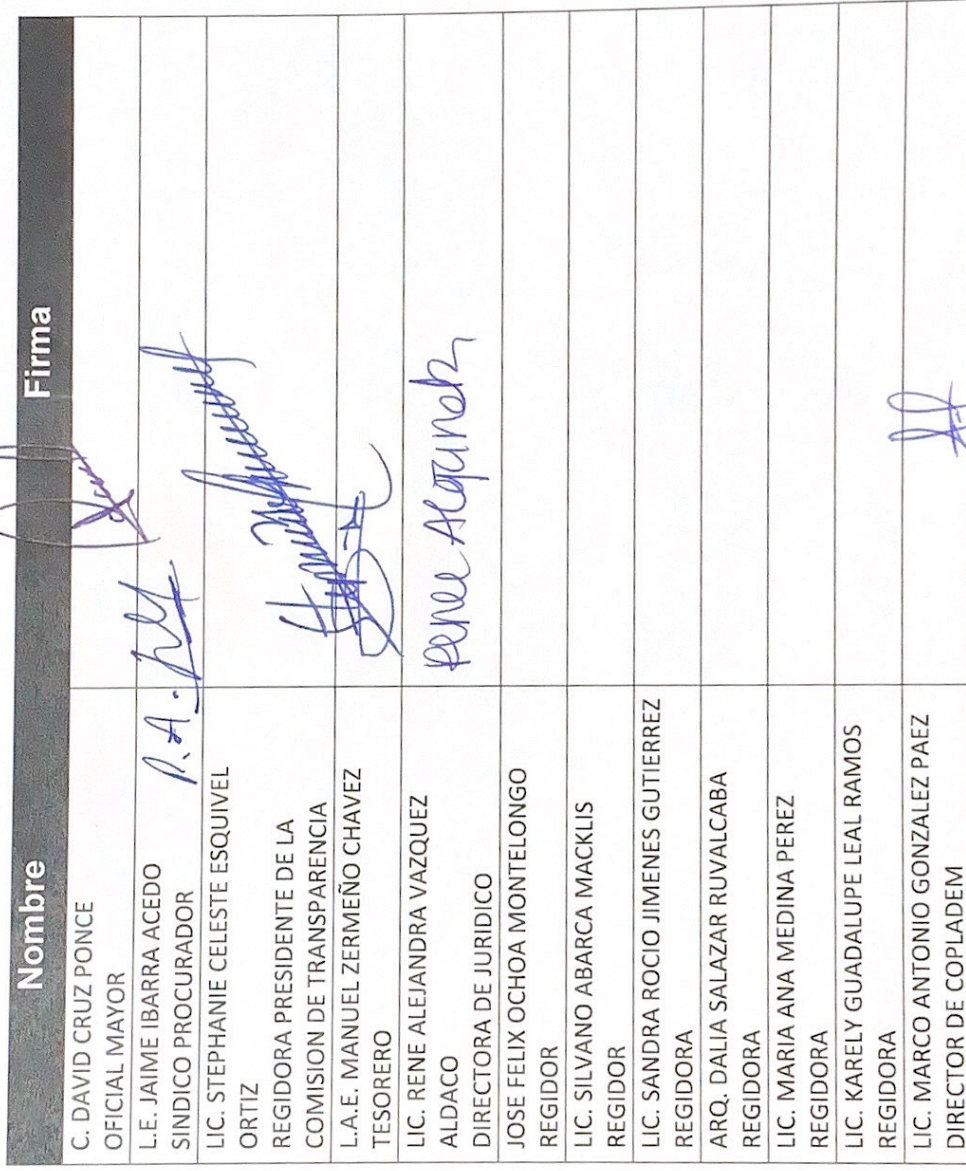 Nombre Firma
C. DAVID CRUZ PONCE
OFICIAL MAYOR
L.E. JAIME IBARRA ACEDO
SINDICO PROCURADOR
P.A.
LIC. STEPHANIE CELESTE ESQUIVEL
ORTIZ
REGIDORA PRESIDENTE DE LA
COMISION DE TRANSPARENCIA
L.A.E. MANUEL ZERMEÑO CHAVEZ
TESORERO
LIC. RENE ALEJANDRA VAZQUEZ
ALDACO
DIRECTORA DE JURIDICO
JOSE FELIX OCHOA MONTELONGO
REGIDOR
LIC. SILVANO ABARCA MACKLIS
REGIDOR
LIC. SANDRA ROCIO JIMENES GUTIERREZ
REGIDORA
ARQ. DALIA SALAZAR RUVALCABA
REGIDORA
LIC. MARIA ANA MEDINA PEREZ
REGIDORA
LIC. KARELY GUADALUPE LEAL RAMOS
REGIDORA
LIC. MARCO ANTONIO GONZALEZ PAEZ
DIRECTOR DE COPLADEM